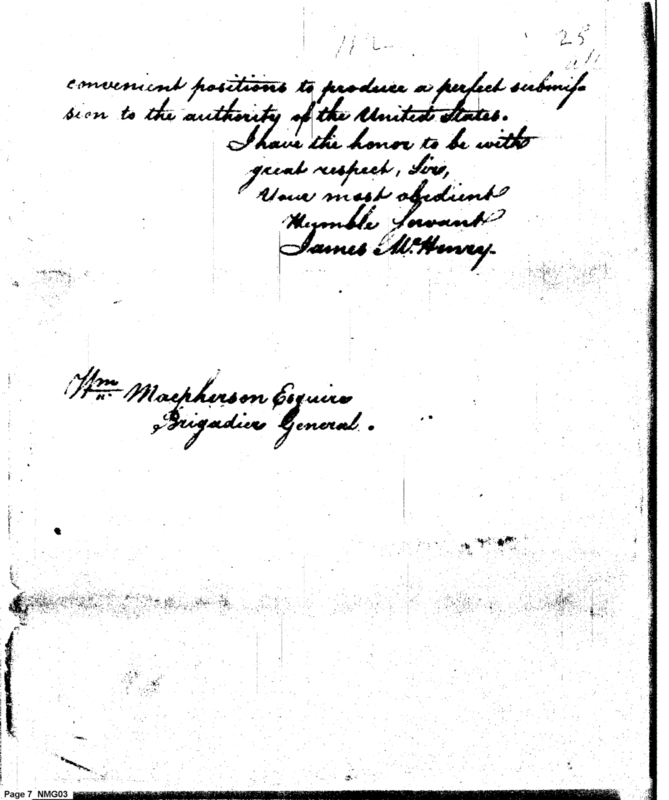 112
25
convenient positions to produce a perfect submiſ-
sion to the authority of the United States.
I have the honor to be with
great respect, Sir,
Your most obedient
Humble Servant
James McHenry.
Wm Macpherson Esquire
Brigadier General.
Page 7 NMG03